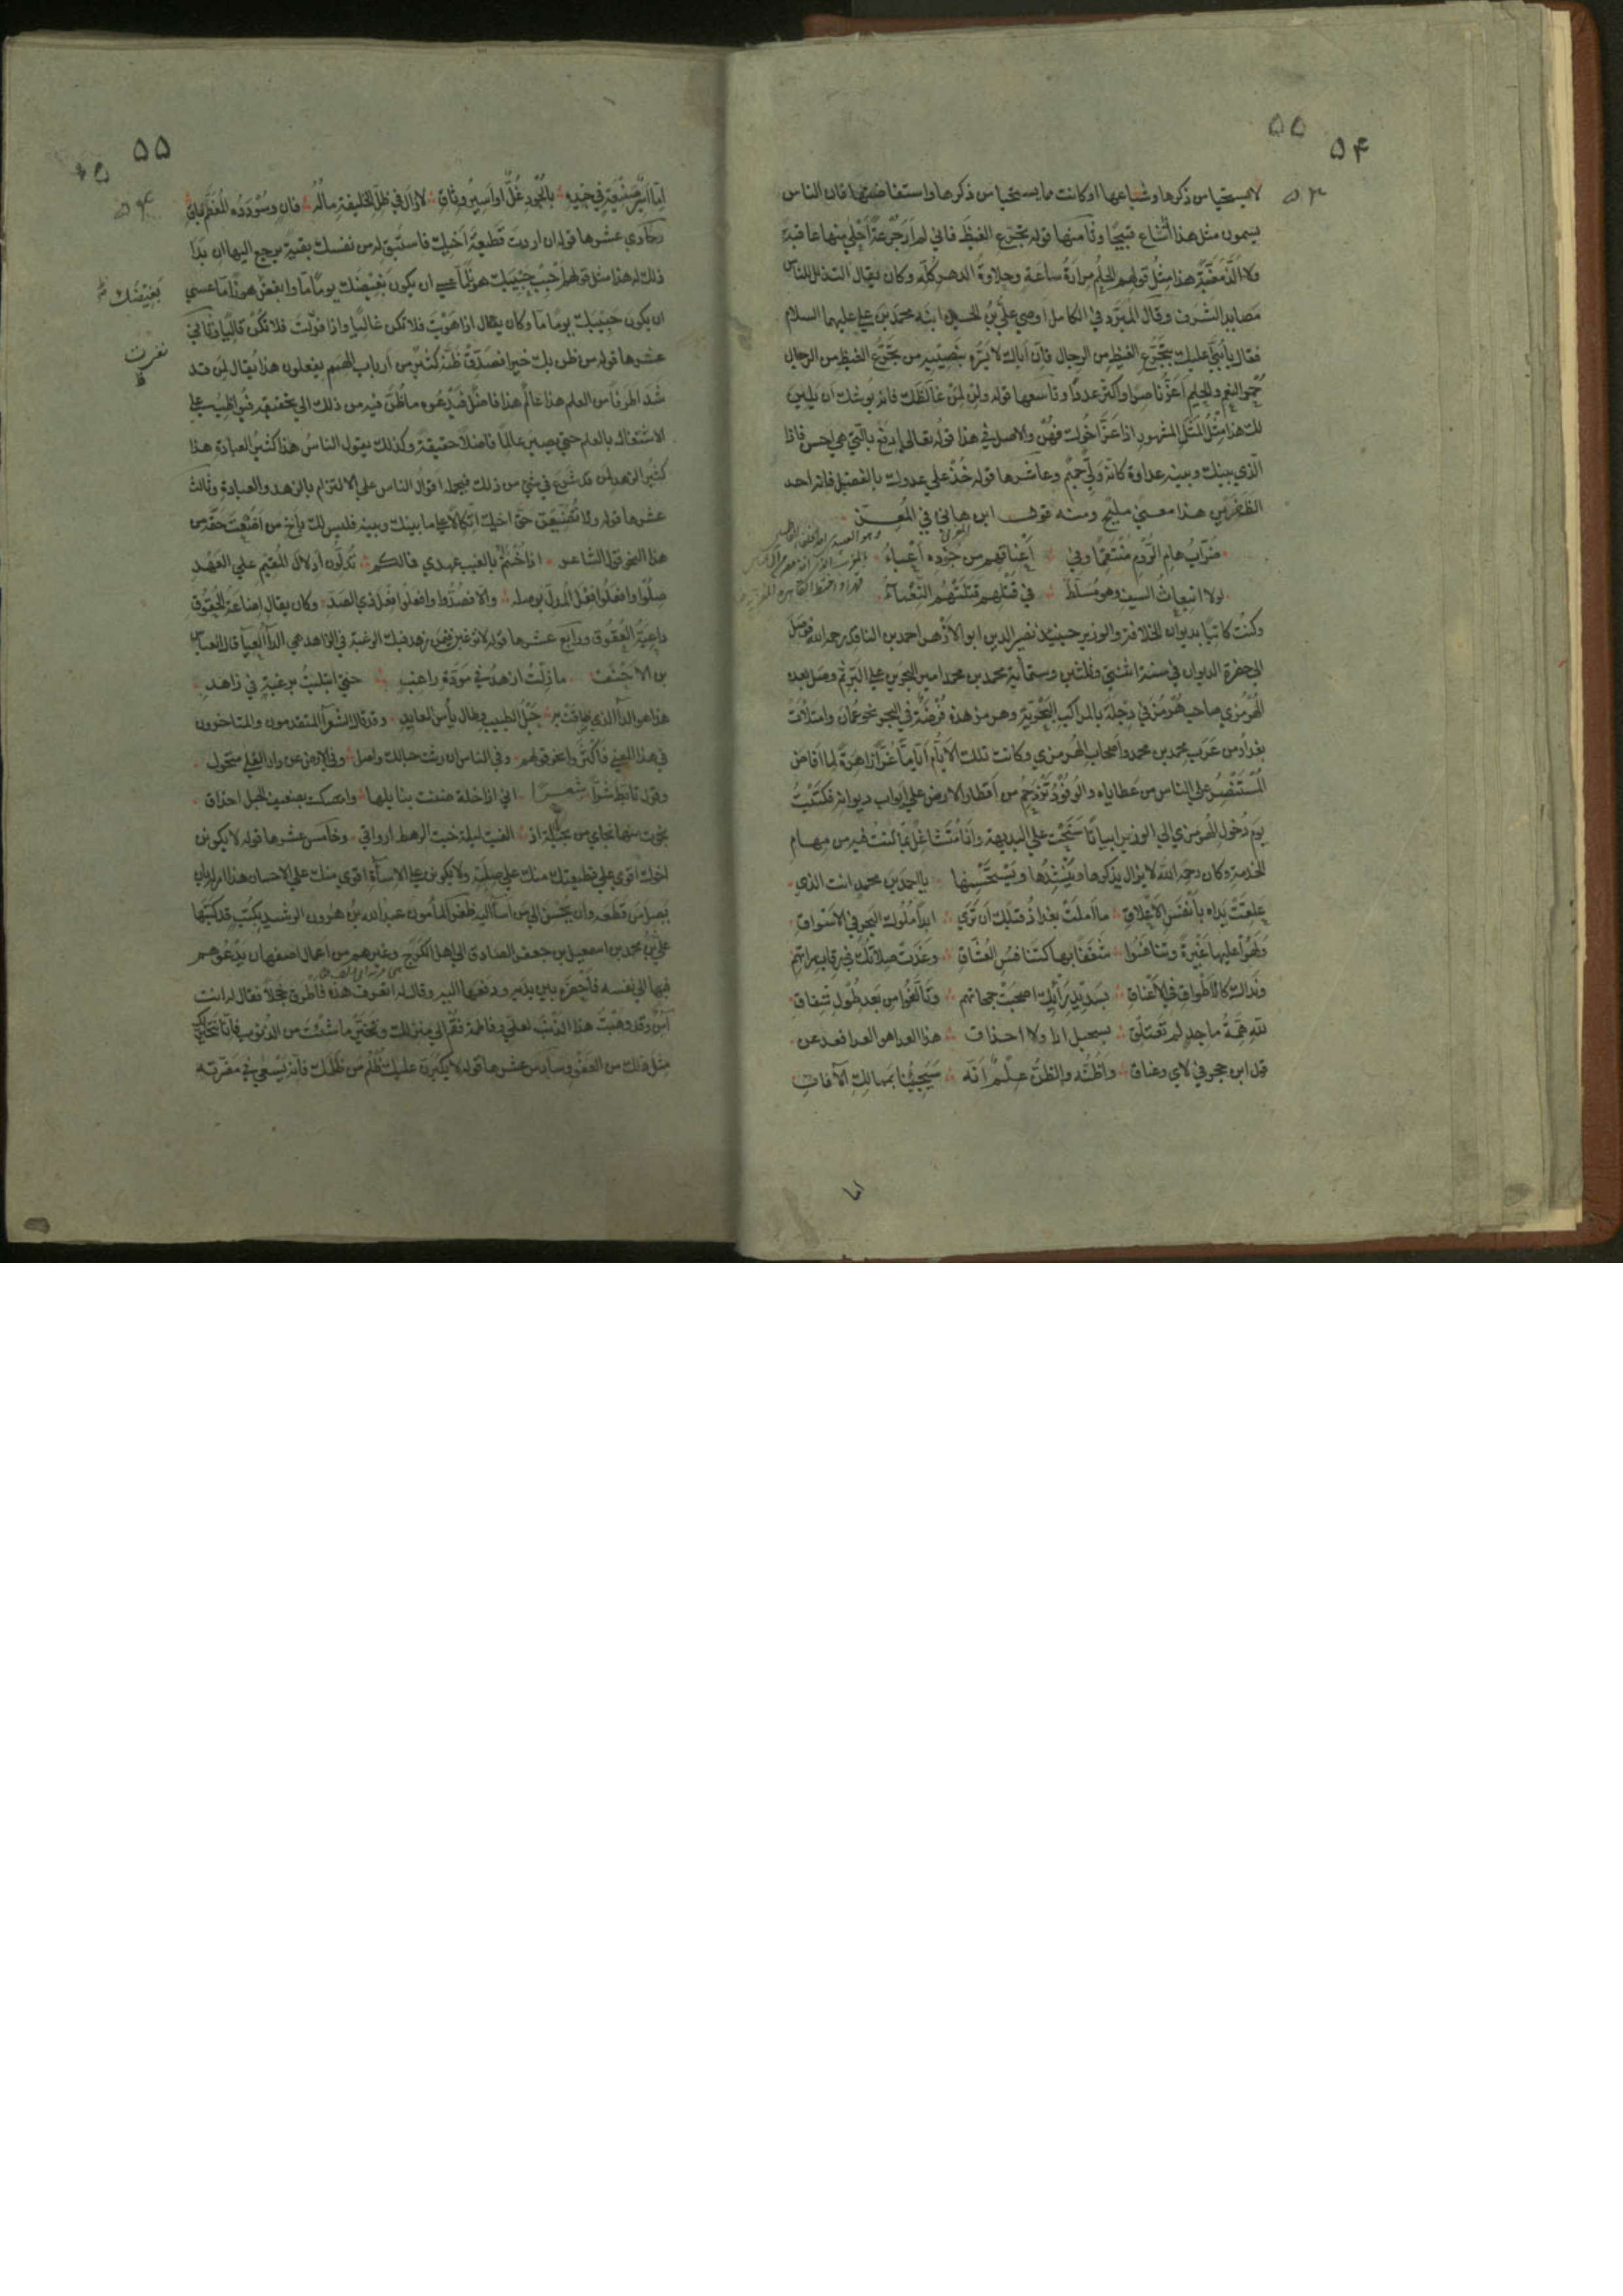 ۵۵
۵۴
۵۳
لا يستحيا من ذكرها وشياعها او كانت مما يستحيا من ذكرها واستفاضتها فان الناس
يسمون مثل هذا قبيحا وثامنها قوله تجرع الغيظ فاني لم ار جرعة احلى منها عاقبة
ولا الذ مغبة هذا مثل قولهم الحلم مرارة ساعة وحلاوة الدهر كله وكان يقال التذلل للناس
مصايد الشرف وقال المبرد في الكامل اوصى علي بن الحسين ابنه محمد بن علي عليهما السلام
فقال يا بني عليك بتجرع الغيظ من الرجال فان اباك لا يسره بنصيبه من تجرع الغيظ من الرجال
حمر النعم والحلم اعز ناصرا واكثر عددا وتاسعها قوله ولن لمن غالظك فانه يوشك ان يلين
لك هذا مثل المثل المشهور اذا عز اخوك فهن والاصل في هذا قوله تعالى ادفع بالتي هي احسن فاذا
الذي بينك وبينه عداوة كانه ولي حميم وعاشرها قوله خذ على عدوك بالفضل فانه احد
الظفرين هذا معنى مليح ومنه قول ابن هاني في المعز
ضراب هام الروم منتقما وفي اعناقهم من جوده اعباء
لولا انبعاث السيف وهو مسلط في قتلهم قتلتهم النعماء
وكنت كاتبا بديوان الخلافة والوزير حينئذ نصير الدين ابو الازهر احمد بن الناقد رحمه الله فوصل
الى حضرة الديوان في سنة اثنتي وثلثين وستمائة محمد بن محمد امير البحرين على البر ثم وصل بعده
الهرمزي صاحب هرمز في دجلة بالمراكب البحرية وهرمز هذه فرضة في البحر نحو عمان وامتلات
بغداد من عرب محمد بن محمد واصحاب الهرمزي وكانت تلك الايام اياما غرا زاهرة لما افاض
المستنصر على الناس من عطاياه والوفود تزدحم من اقطار الارض على ابواب ديوانه فكتبت
يوم دخول الهرمزي الى الوزير ابياتا سنحت على البديهة وانا متشاغل بما كنت فيه من مهام
الخدمة وكان رحمه الله لا يزال يذكرها وينشدها ويستحسنها يا احمد بن محمد انت الذي
علقت يداه بانفس الاعلاق ما املت بغداد قبلك ان ترى ابدا ملوك البحر في الاسواق
ولهوا عليها غيرة وتنافسوا شغفا بها كتنافس العشاق وغدت صلاتك في رقاب سراتهم
ونداك كالاطواق في الاعناق بسديد رايك اصحبت جمحاتهم وتالفوا من بعد طول شقاق
لله همة ماجد لم تعتلق بسحيل اراء ولا احذاق
قبل ابن حجر في لاي وعناق واظنه والظن علم انه سيجيئنا بممالك الافاق
اما
۵۵
۵۴
اما اسير صنيعة في جيده بالجود غل او اسير وثاق لا زال في ظل الخليفة ماله فان وسودده المعظم باق
وحادي عشرها قوله ان اردت قطيعة اخيك فاستبق له من نفسك بقية يرجع اليها ان بدا
ذلك له هذا مثل قولهم احبب حبيبك هونا ما عسى ان يكون بغيضك يوما ما وابغض هونا ما عسى
بغيضك
ان يكون حبيبك يوما ما وكان يقال اذا هويت فلا تكن غاليا واذا فلا تكن قاليا وثاني
عشرها قوله من ظن بك خيرا فصدق ظنه كثير من ارباب الهمم يفعلون هذا يقال لمن قد
شدا طرفا من العلم هذا عالم هذا فاضل فيدعوه ما ظن فيه من ذلك الى تحقيقه فيواظب على
الاشتغال بالعلم حتى يصير عالما فاضلا حقيقة وكذلك يقول الناس هذا كثير العبادة هذا
كثير الزهد لمن قد شرع في شيء من ذلك فيحمله اقوال الناس على الالتزام بالزهد والعبادة وثالث
عشرها قوله ولا تضيعن حق اخيك اتكالا على ما بينك وبينه فليس لك باخ من اضعت حقه من
هذا النحو قول الشاعر اذا خنتم بالغيب عهدي فمالكم تدلون ادلال المقيم على العهد
صلوا وافعلوا فعل المدل بوصله والا فصدوا وافعلوا فعل ذي الصد وكان يقال اضاعة الحقوق
داعية العقوق ورابع عشرها قوله لا ترغبن فيمن زهد فيك الرغبة في الزاهد هي الداء العياء قال العباس
بن الاحنف ما زلت ازهد في مودة راغب حتى ابتليت برغبة في زاهد
هذا هو الداء الذي ضاقت به حيل الطبيب وطال ياس العايد وقد قال الشعراء المتقدمون والمتاخرون
في هذا المعنى فاكثروا نحو قولهم وفي الناس ان رثت حبالك واصل وفي الارض عن دار القلى متحول
وقول تابط شرا شعرا اني اذا خلة ضنت بنايلها وامسكت بضعيف الحبل احذاق
نجوت منها نجاي من بجيلة اذ القيت ليلة خبت الرهط ارواقي وخامس عشرها قوله لا يكونن
اخوك اقوى على قطيعتك منك على صلته ولا يكونن على الاساءة اقوى منك على الاحسان هذا امر له بان
يصل من قطعه وان يحسن الى من اساء اليه ظفر المامون عبد الله بن هرون الرشيد بكتب قد كتبها
علي بن محمد بن اسمعيل بن جعفر الصادق الى اهل الكرج وغيرهم من اعمال اصفهان يدعوهم
فيها الى نفسه فاحضره بين يديه ودفعها اليه وقال له اتعرف هذه فاطرق خجلا فقال له انت
امن وقد وهبت هذا الذنب لعلي وفاطمة فقم الى منزلك وتخير ما شئت من الذنوب فانا نتخير لك
مثل ذلك من العفو وسادس عشرها قوله لا يكبرن عليك ظلم من ظلمك فانه يسعى في مضرته